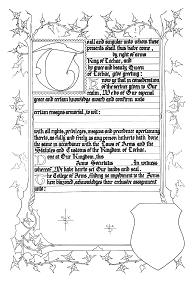 T
o all and singular unto whom these
presents shall thus have come,
by right of arms
King of Lochac, and
by grace and beauty Queen
of Lochac, give greeting:
now ye that in consideration
of the service given to Our
realm, We do of Our especial
grace and certain knowledge award and confirm unto
certain ensigns armorial, to wit:
with all rights, privileges, usages and precedence appertaining
thereto, as fully and freely as any person hitherto hath. Done
the same in accordance with the Laws of Arms and the
Statutes and Customs of the Kingdom of Lochac.
D one at Our Kingdom, this
Anno Societatis In witness
whereof, We have hereto set Our hands and seal.
The College of Arms
here
unto: